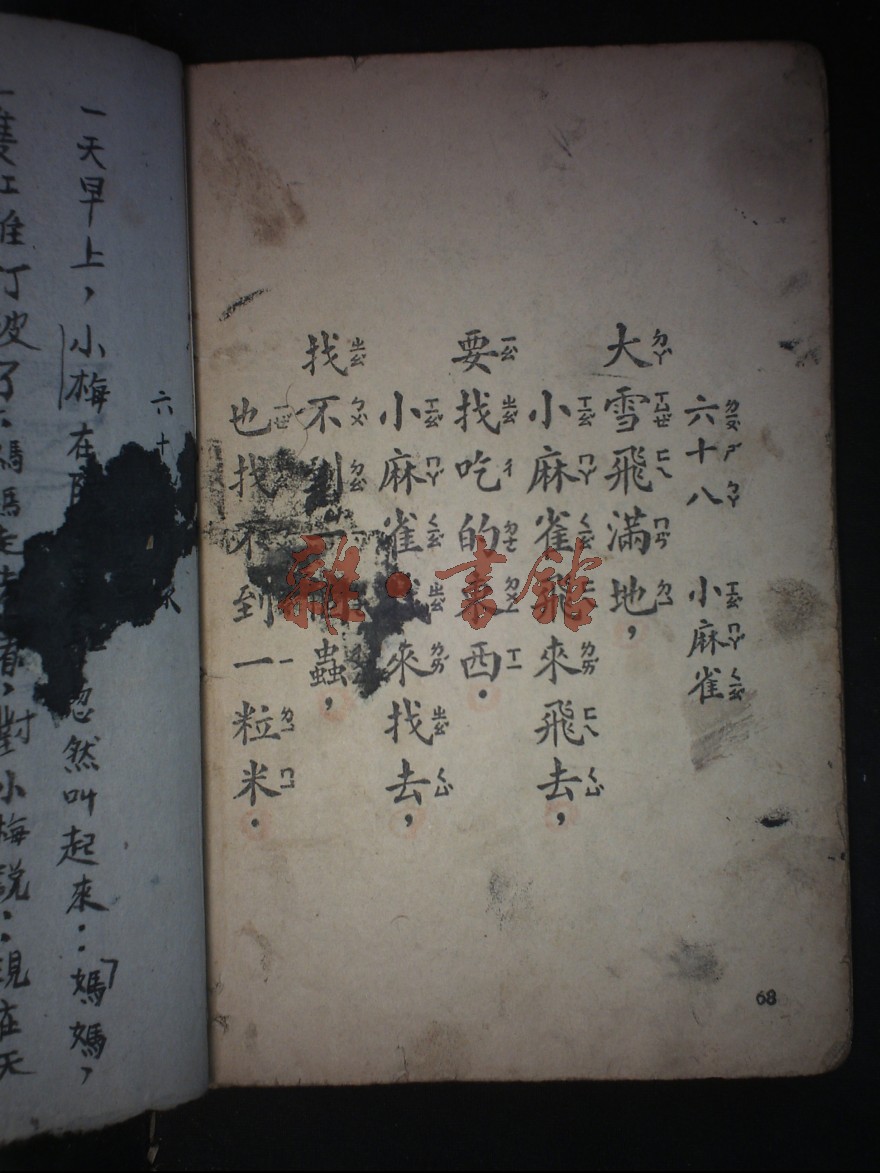 六十八 小麻雀
大雪飛滿地，
小麻雀飛來飛去，
要找吃的東西．
小麻雀找來找去，
找不到一個蟲，
也找不到一粒米．
68
雜·書館
六十
一天早上，小梅在 忽然叫起來：「媽媽，
了：媽媽走 看，對小梅說：現在天